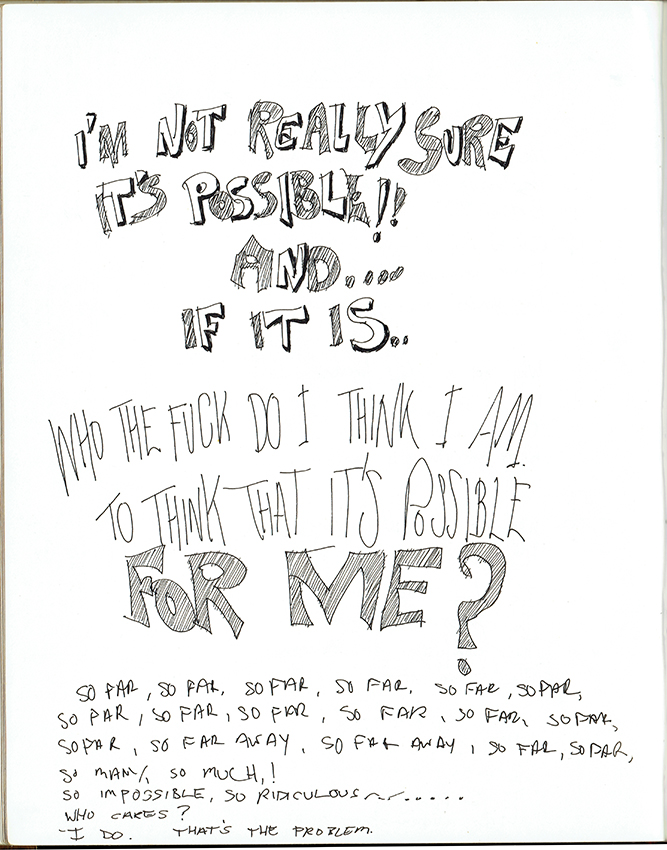 I'M NOT REALLY SURE
IT'S POSSIBLE!!
AND....
IF IT IS..
WHO THE FUCK DO I THINK I AM
TO THINK THAT IT'S POSSIBLE
FOR ME?
SO FAR, SO FAR, SO FAR, SO FAR, SO FAR, SO FAR,
SO FAR, SO FAR, SO FAR, SO FAR, SO FAR, SO FAR,
SO FAR, SO FAR AWAY, SO FAR AWAY, SO FAR, SO FAR,
SO MANY, SO MUCH,!
SO IMPOSSIBLE, SO RIDICULOUS ~~.....
WHO CARES?
-I DO. THAT'S THE PROBLEM.